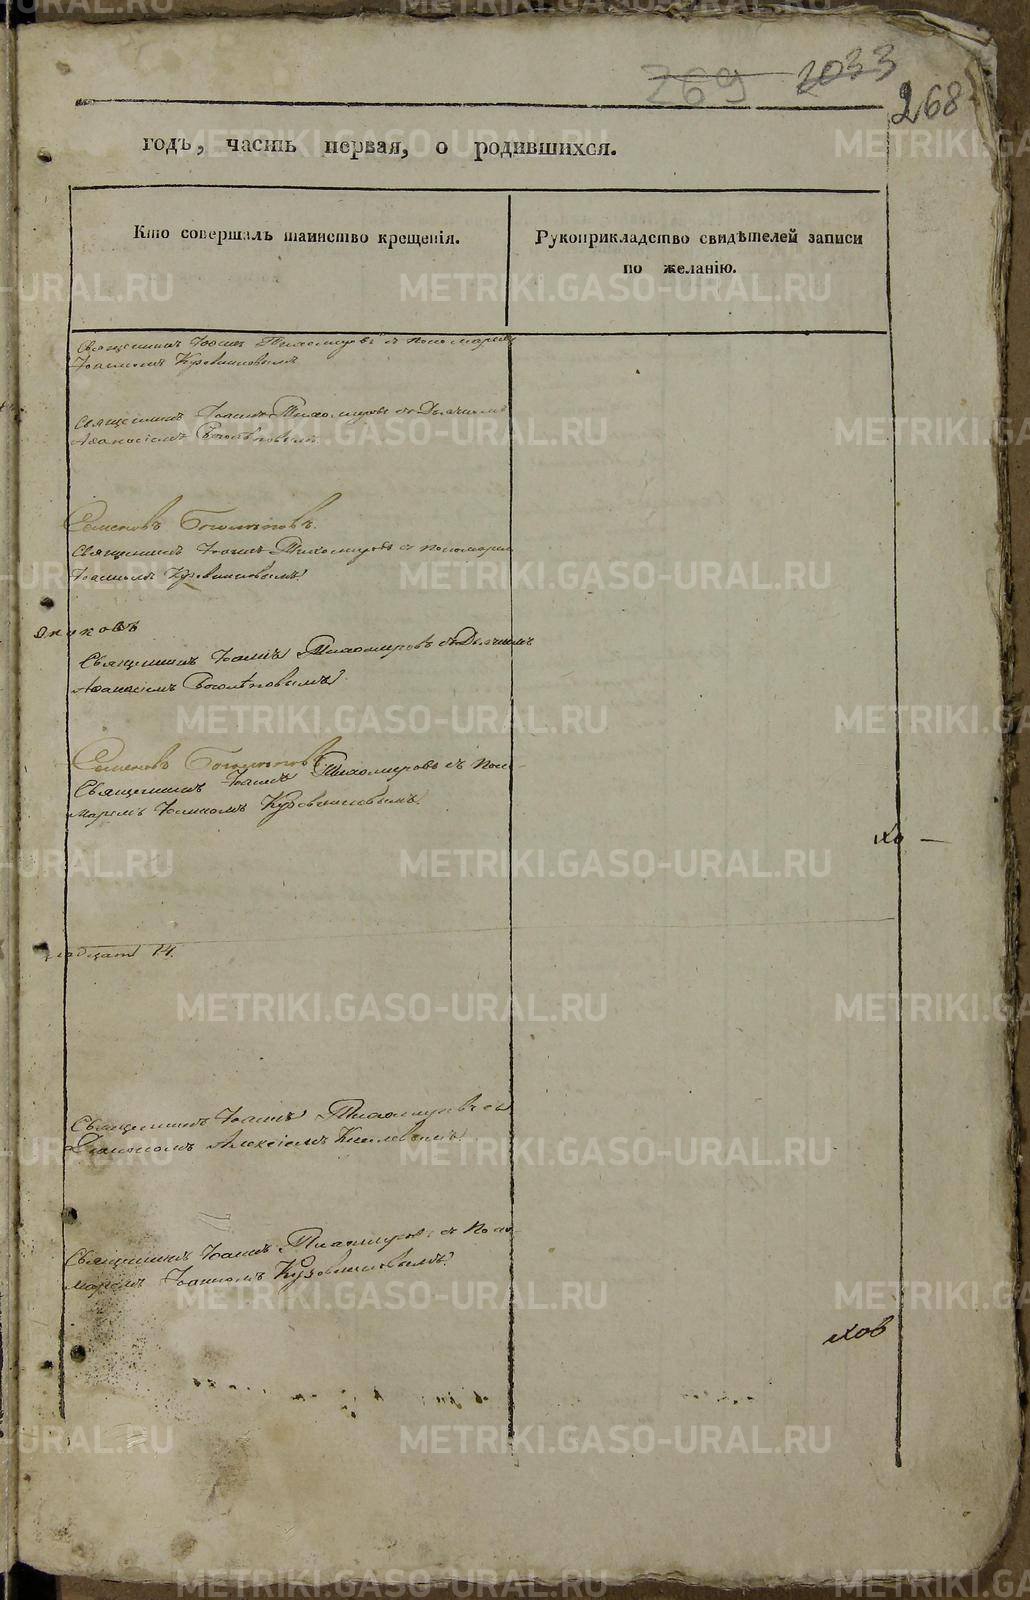 269 2033
268
годъ, часть первая, о родившихся.
Кто совершалъ таинство крещенія.
Рукоприкладство свидѣтелей записи
по желанію.
Священникъ Іоаннъ Тихомировъ съ пономаремъ
Іоанномъ Кузовниковымъ
Священникъ Іоаннъ Тихомировъ съ Дьячкомъ
Аѳанасіемъ Боголѣповымъ.
Семеновъ Боголѣповъ.
Священникъ Іоаннъ Тихомировъ съ пономаремъ
Іоанномъ Кузовниковымъ
Священникъ Іоаннъ Тихомировъ съ Дьячкомъ
Аѳанасіемъ Боголѣповымъ
Семеновъ Боголѣповъ
Священникъ Іоаннъ Тихомировъ съ Поно-
маремъ Іоанномъ Кузовниковымъ.
14.
Священникъ Іоаннъ Тихомировъ съ
Діакономъ Алексіемъ
Священникъ Іоаннъ Тихомировъ съ Поно-
маремъ Іоанномъ Кузовниковымъ.
ховъ
METRIKI.GASO-URAL.RU